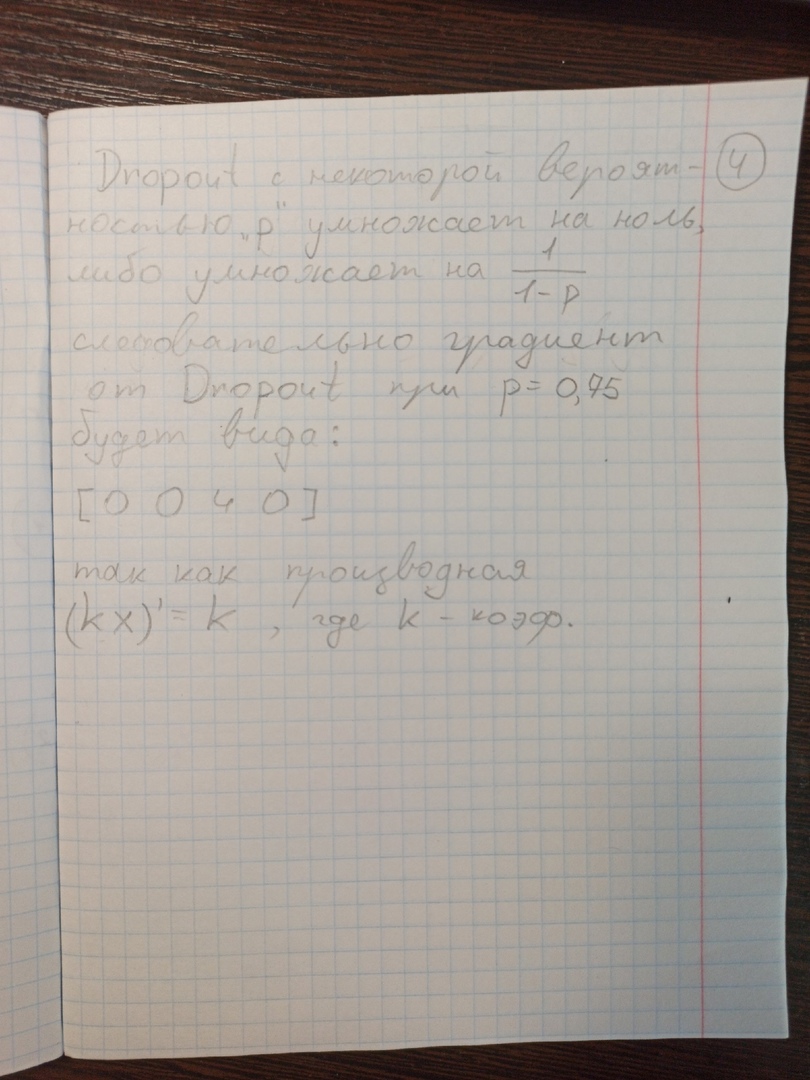 Dropout с некоторой вероят- 4
ностью „p" умножает на ноль,
либо умножает на 1/(1-p)
следовательно градиент
от Dropout при p = 0,75
будет вида:
[0 0 4 0]
так как производная
(kx)' = k , где k - коэф.